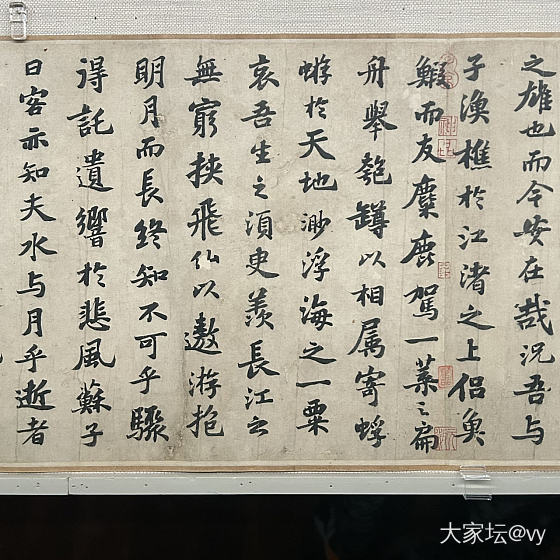 之雄也而今安在哉況吾与
子漁樵於江渚之上侶魚
鰕而友麋鹿駕一葉之扁
舟舉匏罇以相属寄蜉
蝣於天地渺浮海之一粟
哀吾生之須臾羨長江之
無窮挾飛仙以遨游抱
明月而長終知不可乎驟
得託遺響於悲風蘇子
曰客亦知夫水与月乎逝者
大家坛@vy